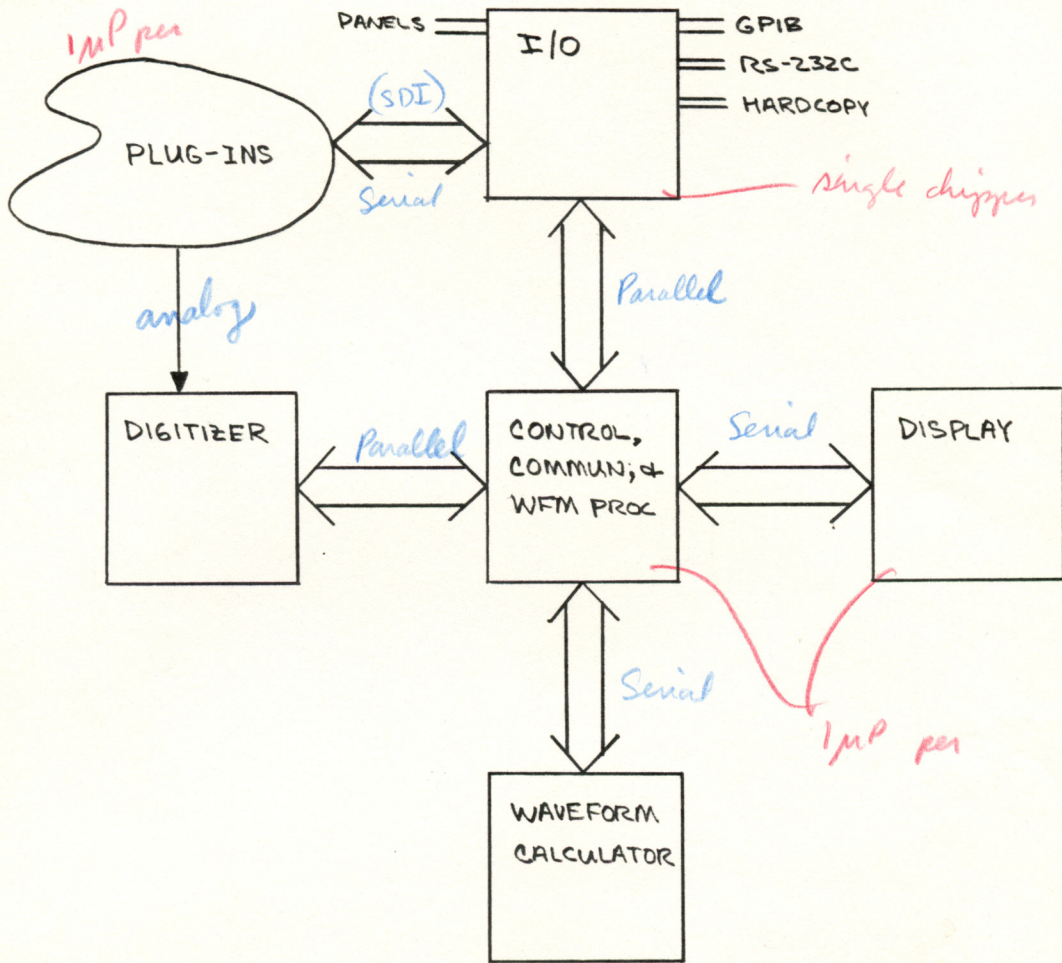 PANELS
I/O
GPIB
RS-232C
HARDCOPY
1µP per
(SDI)
PLUG-INS
Serial
single chipper
Parallel
analog
DIGITIZER
Parallel
CONTROL,
COMMUN; &
WFM PROC
Serial
DISPLAY
Serial
1µP per
WAVEFORM
CALCULATOR